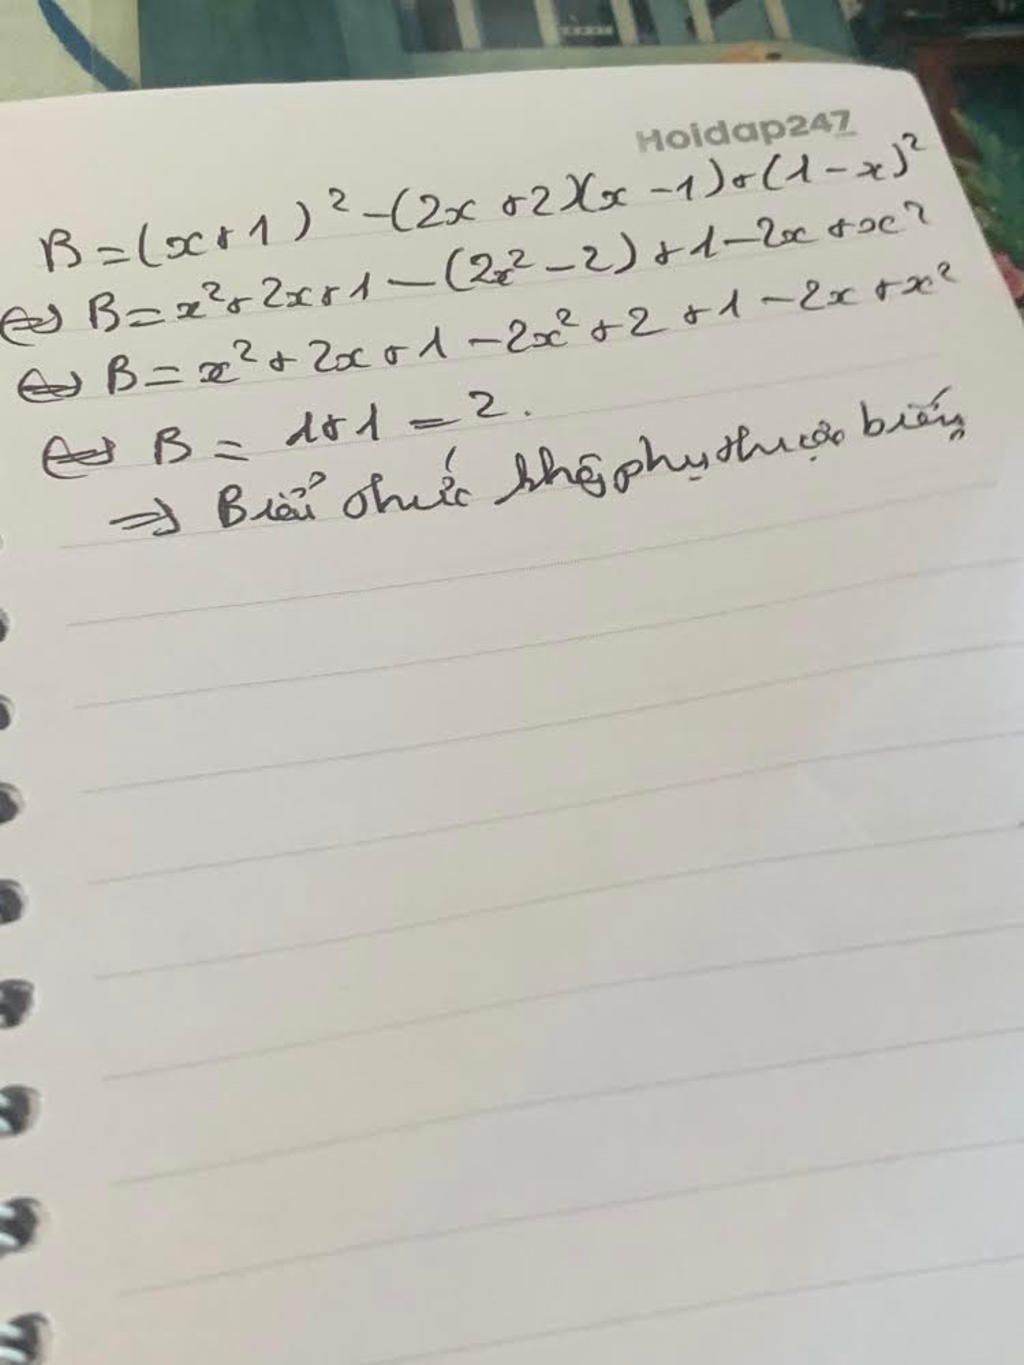 Hoidap247
B = (x+1)² - (2x+2)(x-1)+(1-x)²
⇔ B = x²+2x+1-(2x²-2)+1-2x+x²
⇔ B = x²+2x+1-2x²+2+1-2x+x²
⇔ B = 1+1 = 2.
⇒ Biểu thức không phụ thuộc biến